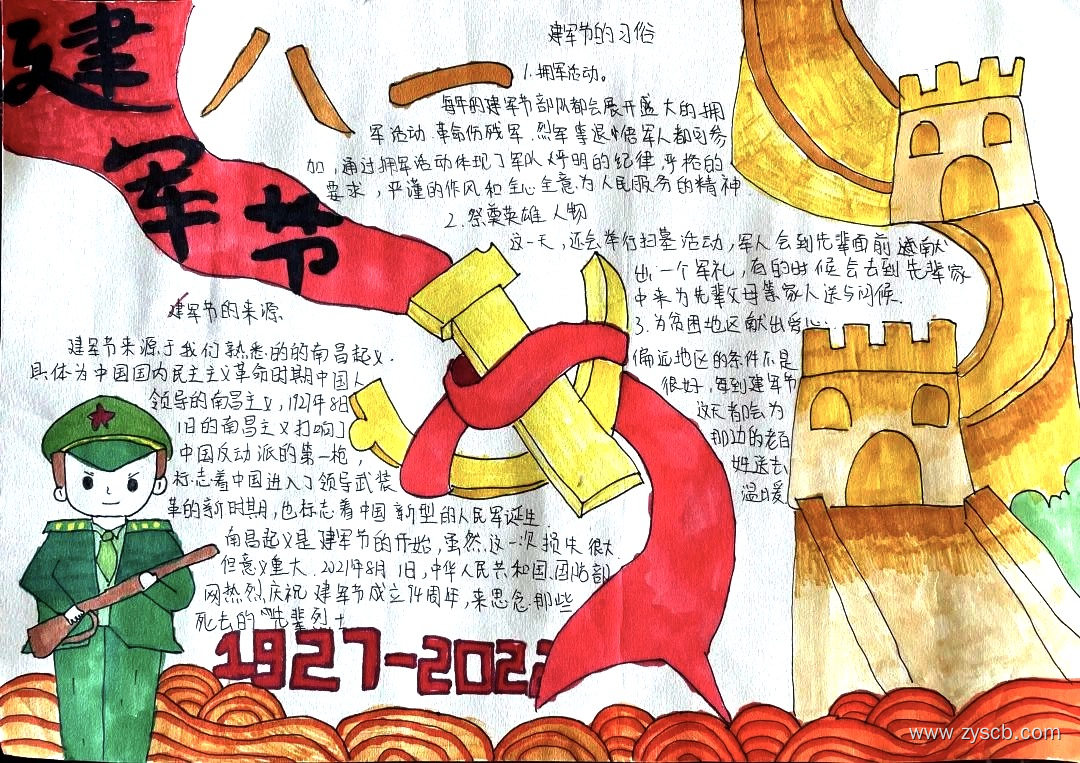 建军节
八一
建军节的习俗
1.拥军活动。
每年的建军节部队都会展开盛大的拥
军活动.革命伤残军.烈军 退 军人都可参
加,通过拥军活动体现了军队严明的纪律,严格的
要求,严谨的作风和全心全意为人民服务的精神
2.祭奠英雄人物
这一天,还会举行扫墓活动,军人会到先辈面前 献
出一个军礼,有的时候会去到先辈家
中来为先辈父母等家人送与问候.
3.为贫困地区献出爱心...
偏远地区的条件不是
很好,每到建军节
这天都会为
那边的老百
姓送去
温暖
建军节的来源
建军节来源于我们熟悉的的南昌起义.
具体为中国国内民主主义革命时期中国人
领导的南昌主义,1921年8月
1日的南昌主义打响了
中国反动派的第一枪,
标志着中国进入了领导武装
革的新时期,也标志着中国新型的人民军诞生.
南昌起义是建军节的开始,虽然这一次损失很大
但意义重大.2021年8月1日,中华人民共和国国防部
网热烈庆祝建军节成立94周年,来思念那些
死去的“先辈烈士
1927-2022
www.zyscb.com